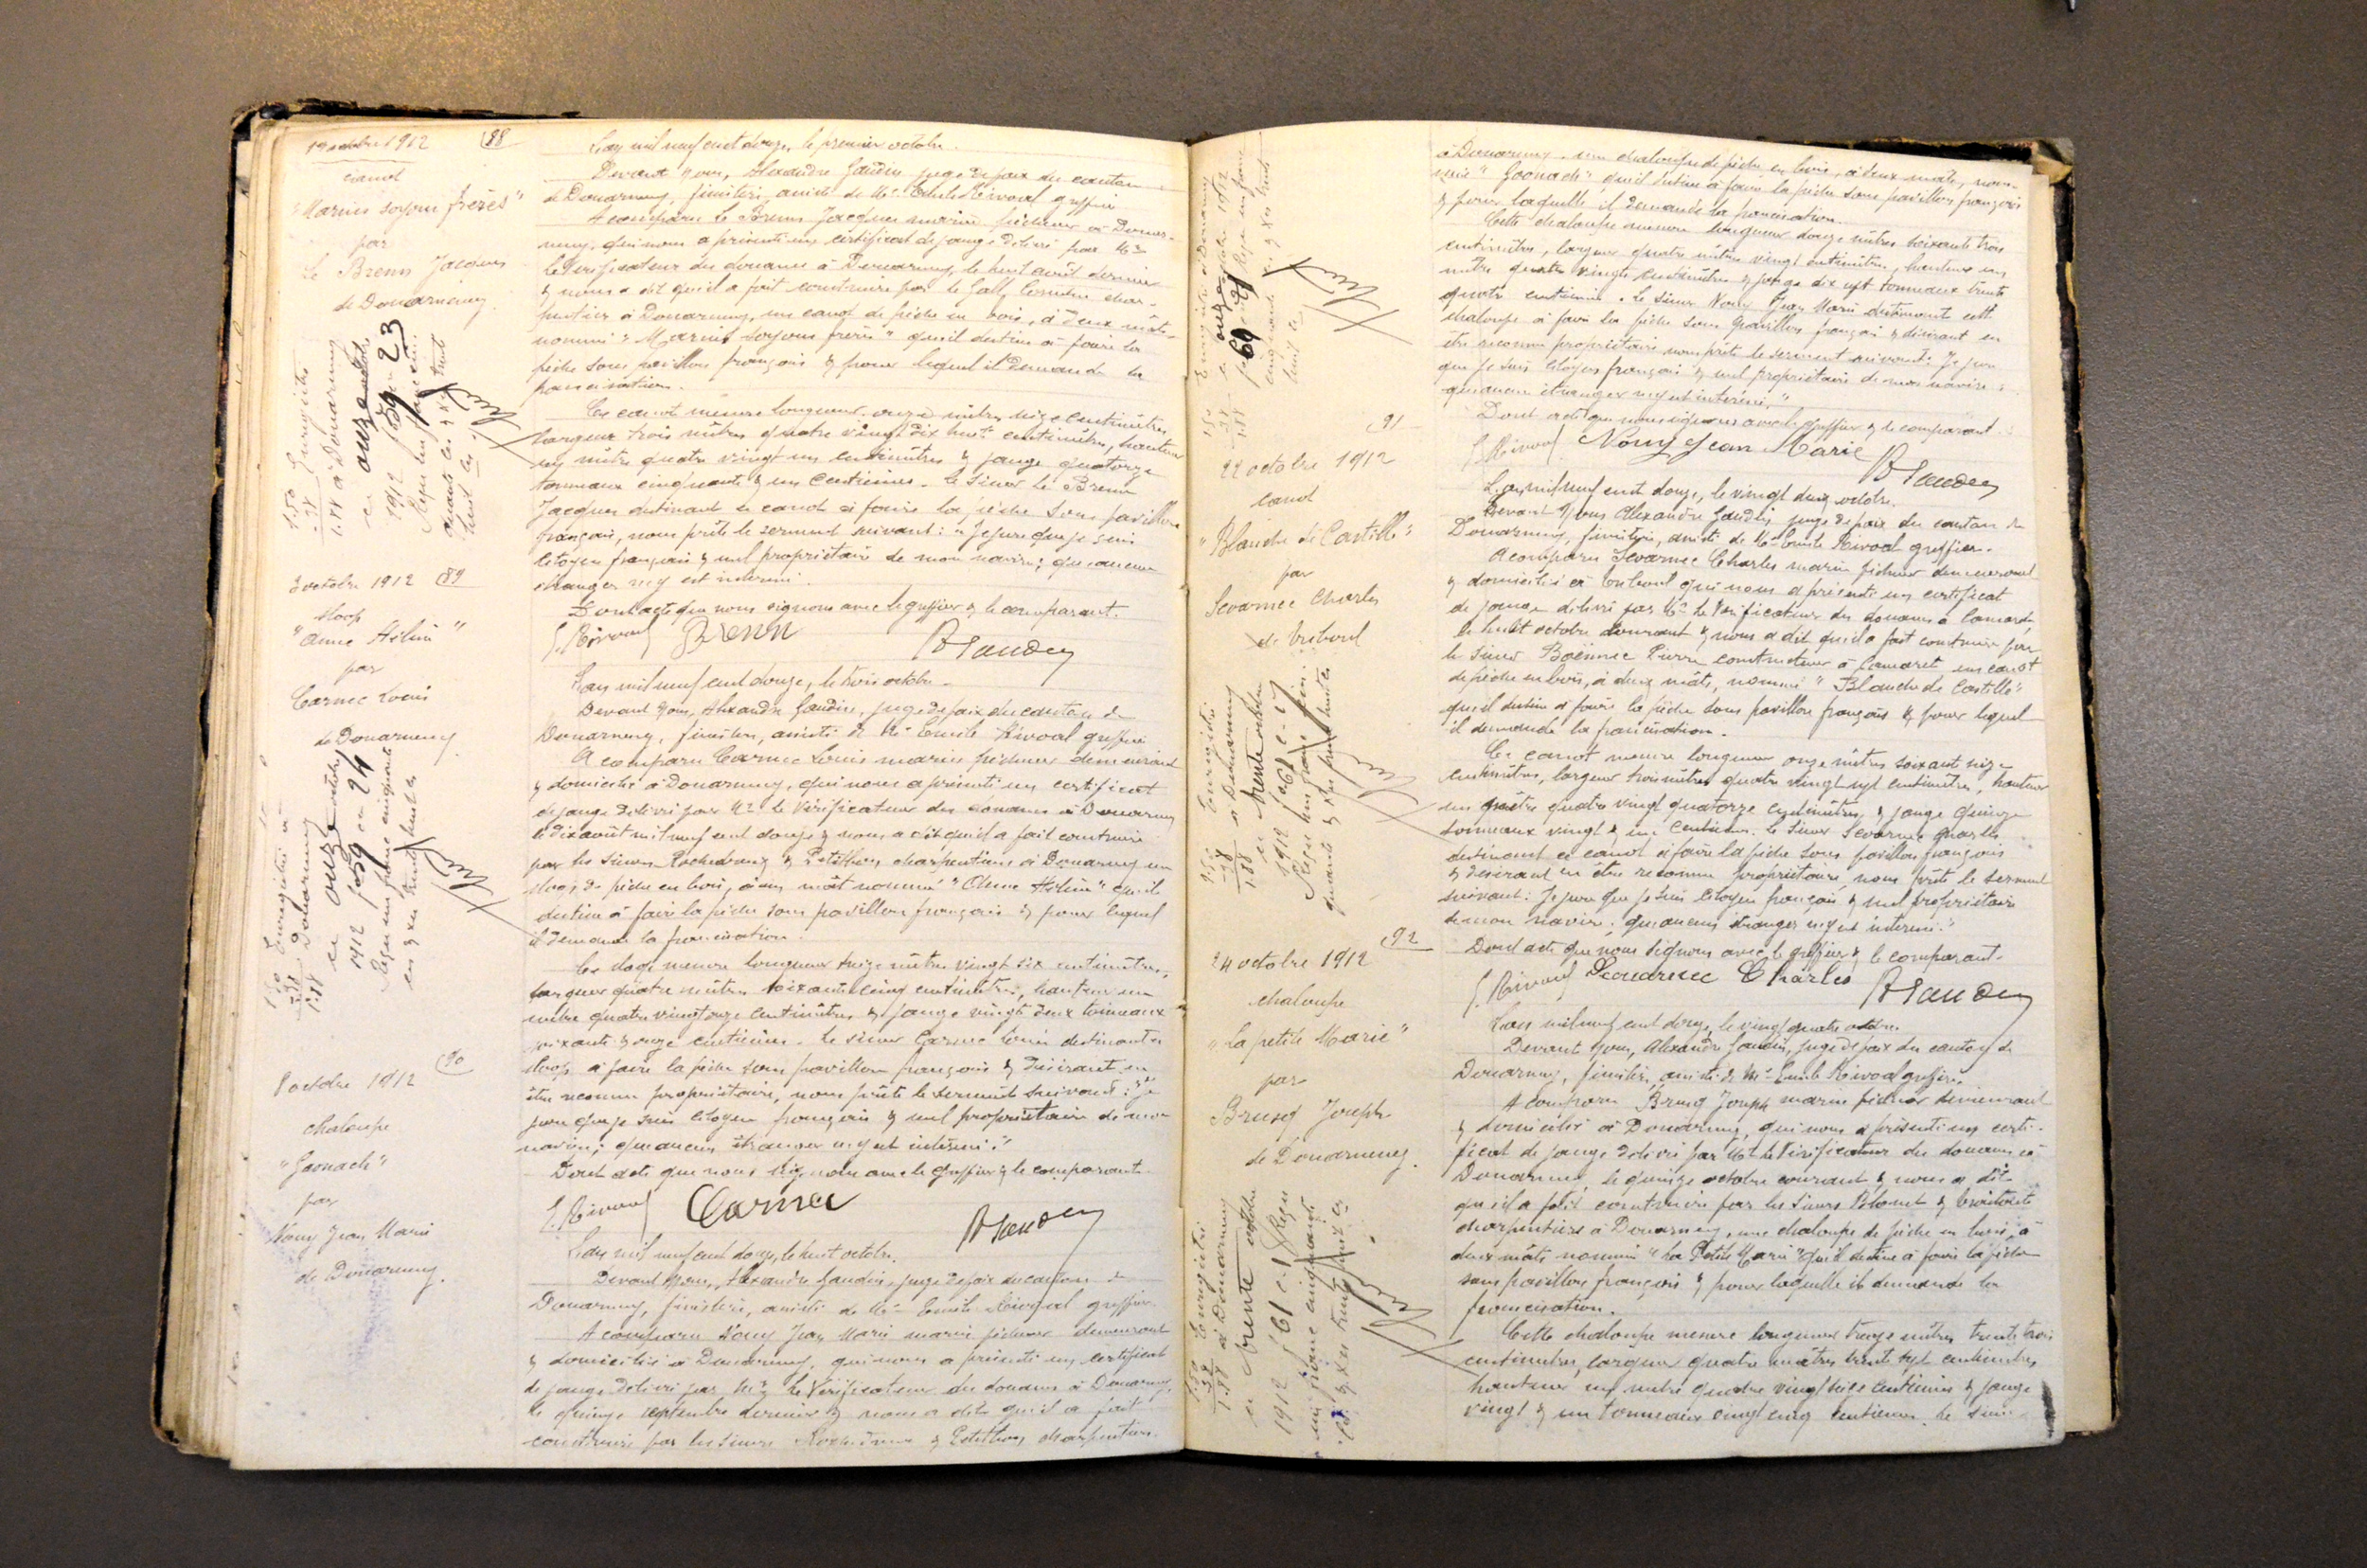 1er octobre 1912
88
canot
"Marins soyons frères"
par
Le Brenn Jacques
de Douarnenez
Enregistré
à Douarnenez
le onze octobre
1912 f° 59 c. 23
Reçu un franc cin-
quante
1.50
.38
1.88
3 octobre 1912 89
sloop
"Anne Hélène"
par
Carnec Louis
de Douarnenez
Enregistré à
Douarnenez
le onze octobre
1912 f° 59 c. 24
Reçu un franc cinquante
1.50
.38
1.88
8 octobre 1912 90
chaloupe
"Goonach"
par
Nouy Jean Marie
de Douarnenez.
L'an mil neuf cent douze, le premier octobre.
Devant nous, Alexandre Gaudin juge de paix du canton
de Douarnenez, finistère, assisté de Me Emile Rivoal greffier
A comparu Le Brenn Jacques marin pêcheur à Douar-
nenez, qui nous a présenté un certificat de jauge délivré par Mr
le Vérificateur des douanes à Douarnenez, le huit août dernier
& nous a dit qu'il a fait construire par Le Gall, char-
pentier à Douarnenez, un canot de pêche en bois, à deux mâts
nommé "Marins soyons frères" qu'il destine à faire la
pêche sous pavillon français & pour lequel il demande la
francisation.
Ce canot mesure longueur onze mètres seize centimètres,
largeur trois mètres quatre vingt dix huit centimètres, hauteur
un mètre quatre vingt un centimètres & jauge quatorze
tonneaux cinquante & un centièmes. Le sieur Le Brenn
Jacques destinant ce canot à faire la pêche sous pavillon
français, nous prête le serment suivant: "Je jure que je suis
citoyen français & seul propriétaire de mon navire; qu'aucun
étranger n'y est intéressé.
Dont acte que nous signons avec le greffier & le comparant.
E. Rivoal Brenn
A. Gaudin
L'an mil neuf cent douze, le trois octobre.
Devant nous, Alexandre Gaudin, juge de paix du canton de
Douarnenez, finistère, assisté de Me Emile Rivoal greffier
A comparu Carnec Louis marin pêcheur demeurant
& domicilié à Douarnenez, qui nous a présenté un certificat
de jauge délivré par Mr le Vérificateur des douanes à Douarnenez
le dix août mil neuf cent douze & nous a dit qu'il a fait construire
par les sieurs & Petithon charpentiers à Douarnenez un
sloop de pêche en bois, à un mât nommé "Anne Hélène" qu'il
destine à faire la pêche sous pavillon français & pour lequel
il demande la francisation.
Ce sloop mesure longueur treize mètres vingt six centimètres,
largeur quatre mètres soixante cinq centimètres, hauteur un
mètre quatre vingt onze centimètres & jauge vingt deux tonneaux
soixante & onze centièmes. Le sieur Carnec Louis destinant ce
sloop à faire la pêche sous pavillon français & désirant en
être reconnu propriétaire, nous prête le serment suivant: "Je
jure que je suis citoyen français & seul propriétaire de mon
navire; qu'aucun étranger n'y est intéressé."
Dont acte que nous signons avec le greffier & le comparant.
E. Rivoal Carnec
A. Gaudin
L'an mil neuf cent douze, le huit octobre.
Devant nous, Alexandre Gaudin, juge de paix du canton de
Douarnenez, finistère, assisté de Me Emile Rivoal greffier
A comparu Nouy Jean Marie marin pêcheur demeurant
& domicilié à Douarnenez, qui nous a présenté un certificat
de jauge délivré par Mr le Vérificateur des douanes à Douarnenez,
le quinze septembre dernier & nous a dit qu'il a fait
construire par les sieurs & Petithon charpentiers
Enregistré à Douarnenez
le onze octobre 1912
f° 60 Reçu un franc
cinquante
1.50
.38
1.88
91
22 octobre 1912
canot
"Blanche de Castille"
par
Scouarnec Charles
de Tréboul
Enregistré
à Douarnenez
le trente octobre
1912 f° 61 c.
Reçu un franc cin-
quante
1.50
.38
1.88
92
24 octobre 1912
chaloupe
"La petite Marie"
par
Brusq Joseph
de Douarnenez.
Enregistré
à Douarnenez
le trente octobre
1912 f° 61 c. Reçu
un franc cinquante
1.50
.38
1.88
à Douarnenez, une chaloupe de pêche en bois, à deux mâts, nom-
mée "Goonach" qu'il destine à faire la pêche sous pavillon français
& pour laquelle il demande la francisation.
Cette chaloupe mesure longueur douze mètres soixante trois
centimètres, largeur quatre mètres vingt centimètres, hauteur un
mètre quatre vingts centimètres & jauge dix sept tonneaux trente
quatre centièmes. Le sieur Nouy Jean Marie destinant cette
chaloupe à faire la pêche sous pavillon français & désirant en
être reconnu propriétaire nous prête le serment suivant: "Je jure
que je suis citoyen français & seul propriétaire de mon navire;
qu'aucun étranger n'y est intéressé."
Dont acte que nous signons avec le greffier & le comparant.
E. Rivoal Nouy Jean Marie
A. Gaudin
L'an mil neuf cent douze, le vingt deux octobre.
Devant nous Alexandre Gaudin juge de paix du canton de
Douarnenez, finistère, assisté de Me Emile Rivoal greffier.
A comparu Scouarnec Charles marin pêcheur demeurant
& domicilié à Tréboul qui nous a présenté un certificat
de jauge délivré par Mr le Vérificateur des douanes à Camaret,
le huit octobre courant & nous a dit qu'il a fait construire par
le sieur Pierre constructeur à Camaret un canot
de pêche en bois, à deux mâts, nommé "Blanche de Castille"
qu'il destine à faire la pêche sous pavillon français & pour lequel
il demande la francisation.
Ce canot mesure longueur onze mètres soixante seize
centimètres, largeur trois mètres quatre vingt sept centimètres, hauteur
un mètre quatre vingt quatorze centimètres, & jauge quinze
tonneaux vingt & un centièmes. Le sieur Scouarnec Charles
destinant ce canot à faire la pêche sous pavillon français
& désirant en être reconnu propriétaire, nous prête le serment
suivant: "Je jure que je suis citoyen français & seul propriétaire
de mon navire; qu'aucun étranger n'y est intéressé."
Dont acte que nous signons avec le greffier & le comparant.
E. Rivoal Scouarnec Charles
A. Gaudin
L'an mil neuf cent douze, le vingt quatre octobre.
Devant nous, Alexandre Gaudin, juge de paix du canton de
Douarnenez, finistère, assisté de Me Emile Rivoal greffier.
A comparu Brusq Joseph marin pêcheur demeurant
& domicilié à Douarnenez, qui nous a présenté un certi-
ficat de jauge délivré par Mr le Vérificateur des douanes à
Douarnenez, le quinze octobre courant & nous a dit
qu'il a fait construire par les sieurs &
charpentiers à Douarnenez, une chaloupe de pêche en bois, à
deux mâts nommée "La Petite Marie" qu'il destine à faire la pêche
sous pavillon français & pour laquelle il demande la
francisation.
Cette chaloupe mesure longueur treize mètres trente trois
centimètres, largeur quatre mètres trente sept centimètres
hauteur un mètre quatre vingt seize centièmes & jauge
vingt & un tonneaux vingt cinq centièmes. Le sieur